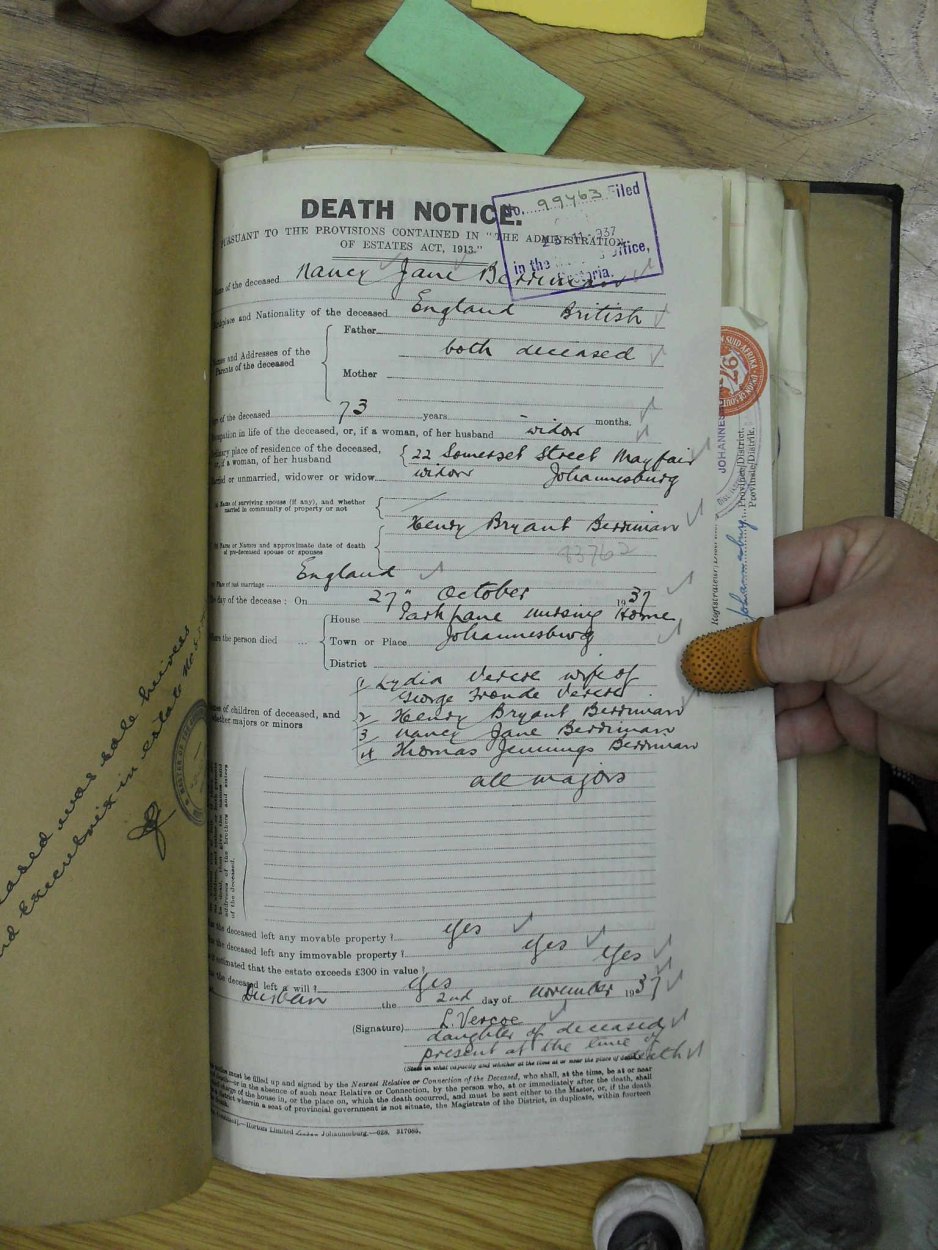 DEATH NOTICE.
No. 99463 Filed
23·11·937
in the Office,
Pretoria.
PURSUANT TO THE PROVISIONS CONTAINED IN "THE ADMINISTRATION
OF ESTATES ACT, 1913."
of the deceased Nancy Jane Berriman
and Nationality of the deceased England British
Names and Addresses of the
Parents of the deceased
Father
both deceased
Mother
of the deceased 73 years - months.
Occupation in life of the deceased, or, if a woman, of her husband widow
Ordinary place of residence of the deceased,
or, if a woman, of her husband
22 Somerset Street Mayfair
Married or unmarried, widower or widow widow Johannesburg
Name of surviving spouse (if any), and whether
married in community of property or not
Henry Bryant Berriman
Name or Names and approximate date of death
of pre-deceased spouse or spouses
93762
Place of last marriage England
The day of the decease: On 27" October 1937
Where the person died ...
House Park Lane nursing Home
Town or Place Johannesburg
District
Names of children of deceased, and
whether majors or minors
1 Lydia Vercoe wife of
George Froude Vercoe
2 Henry Bryant Berriman
3 Nancy Jane Berriman
4 Thomas Jennings Berriman
all majors
addresses of the brothers and sisters
of the deceased.
the deceased left any movable property? Yes
the deceased left any immovable property? Yes
estimated that the estate exceeds £300 in value? Yes
the deceased left a will? Yes
Durban the 2nd day of november 1937
(Signature) L. Vercoe
daughter of deceased
present at the time of
death
(State in what capacity and whether at the time at or near the place of death)
must be filled up and signed by the Nearest Relative or Connection of the Deceased, who shall, at the time, be at or near
death—or in the absence of such near Relative or Connection, by the person who, at or immediately after the death, shall
charge of the house in, or the place on, which the death occurred, and must be sent either to the Master, or, if the death
district wherein a seat of provincial government is not situate, the Magistrate of the District, in duplicate, within fourteen
Hortors Limited London Johannesburg.—028. 317085.
deceased was sole heiress
and executrix in estate No.
JOHANNES
Johannesburg Province/District.
Provinsie/Distrik.